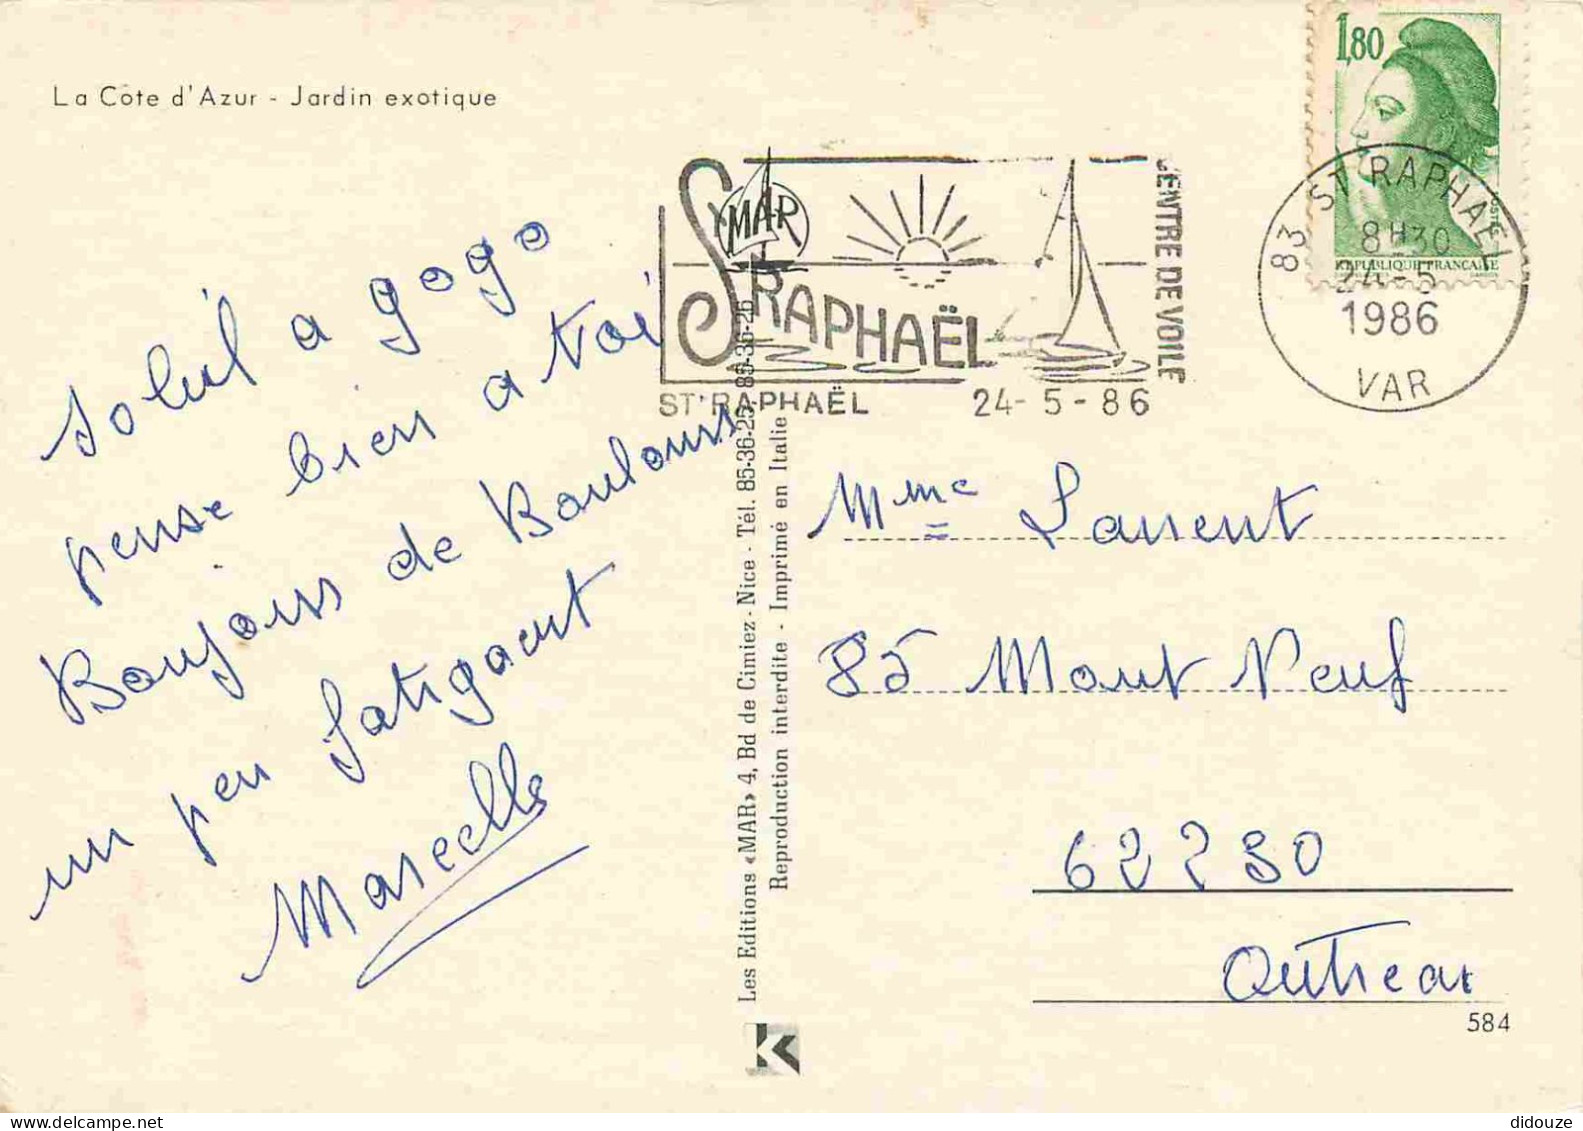 La Côte d'Azur - Jardin exotique
1,80
RÉPUBLIQUE FRANÇAISE
83 ST RAPHAEL
8H30
24-5
1986
VAR
MAR
ST RAPHAËL
CENTRE DE VOILE
ST RAPHAËL 24-5-86
Soleil a gogo
pense bien a toi
Bonjours de Boulouris
un peu fatigant
Marcelle
Les Editions «MAR» 4, Bd de Cimiez - Nice - Tél. 85-36-25 85-36-26
Reproduction interdite - Imprimé en Italie
Mme Laurent
85 Mont Neuf
62230
Outreau
584
K
didouze